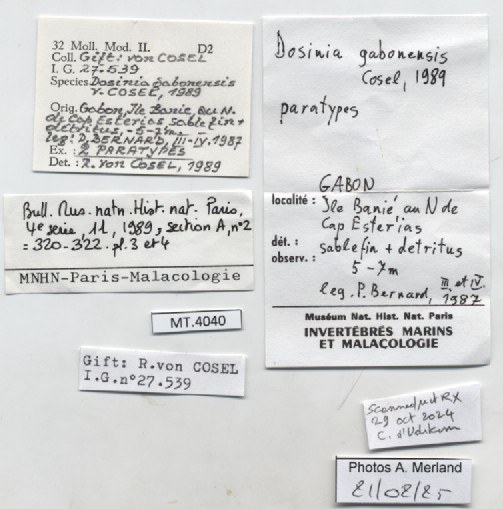 32 Moll. Mod. II. D2
Coll. Gift: von COSEL
I. G. 27.539
Species Dosinia gabonensis
v. COSEL, 1989
Orig. Gabon, Ile Banie, au N.
de Cap Esterias, sable fin +
detritus, -5-7m
leg. P. BERNARD, III-IV.1987
Ex. : 2 PARATYPES
Det. : R. von COSEL, 1989
Bull. Mus. natn. Hist. nat. Paris,
4e serie, 11, 1989, section A, n°2
= 320-322. pl. 3 et 4
MNHN-Paris-Malacologie
MT.4040
Gift: R.von COSEL
I.G.n°27.539
Dosinia gabonensis
Cosel, 1989
paratypes
GABON
localité : Ile Banié au N de
Cap Esterias
dét. : sable fin + detritus
observ. : 5-7m
leg. P. Bernard, III et IV. 1987
Muséum Nat. Hist. Nat. Paris
INVERTÉBRÉS MARINS
ET MALACOLOGIE
Scanned RX
29 oct 2024
C. d'Udekem
Photos A. Merland
21/02/25